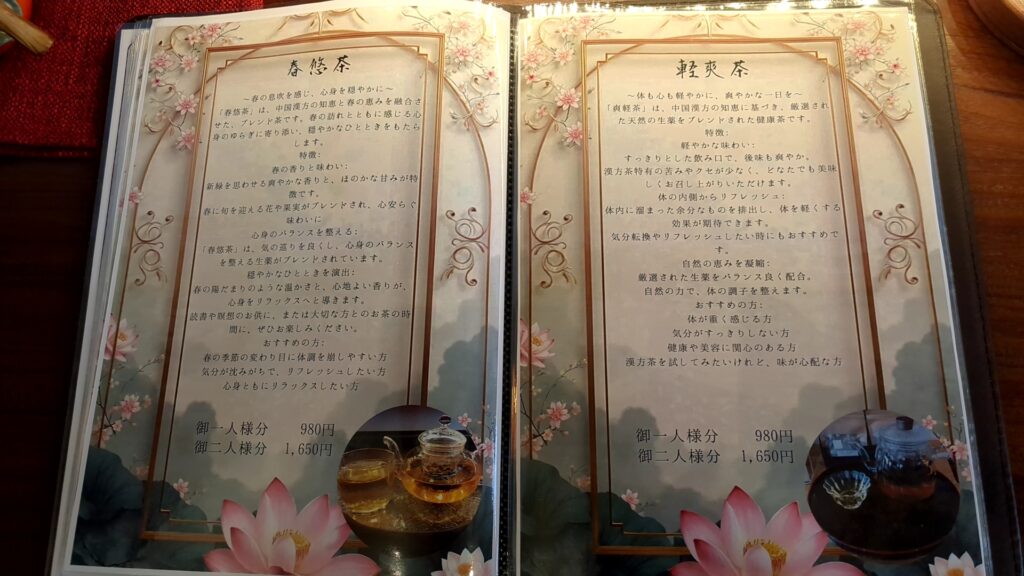 春悠茶
～春の息吹を感じ、心身を穏やかに～
「春悠茶」は、中国漢方の知恵と春の恵みを融合さ
せた、ブレンド茶です。春の訪れとともに感じる心
身のゆらぎに寄り添い、穏やかなひとときをもたら
します。
特徴:
春の香りと味わい:
新緑を思わせる爽やかな香りと、ほのかな甘みが特
徴です。
春に旬を迎える花や果実がブレンドされ、心安らぐ
味わいに
心身のバランスを整える:
「春悠茶」は、気の巡りを良くし、心身のバランス
を整える生薬がブレンドされています。
穏やかなひとときを演出:
春の陽だまりのような温かさと、心地よい香りが、
心身をリラックスへと導きます。
読書や瞑想のお供に、または大切な方とのお茶の時
間に、ぜひお楽しみください。
おすすめの方:
春の季節の変わり目に体調を崩しやすい方
気分が沈みがちで、リフレッシュしたい方
心身ともにリラックスしたい方
御一人様分 980円
御二人様分 1,650円
軽爽茶
～体も心も軽やかに、爽やかな一日を～
「爽軽茶」は、中国漢方の知恵に基づき、厳選され
た天然の生薬をブレンドされた健康茶です。
特徴:
軽やかな味わい:
すっきりとした飲み口で、後味も爽やか。
漢方茶特有の苦みやクセが少なく、どなたでも美味
しくお召し上がりいただけます。
体の内側からリフレッシュ:
体内に溜まった余分なものを排出し、体を軽くする
効果が期待できます。
気分転換やリフレッシュしたい時にもおすすめで
す。
自然の恵みを凝縮:
厳選された生薬をバランス良く配合。
自然の力で、体の調子を整えます。
おすすめの方:
体が重く感じる方
気分がすっきりしない方
健康や美容に関心のある方
漢方茶を試してみたいけれど、味が心配な方
御一人様分 980円
御二人様分 1,650円